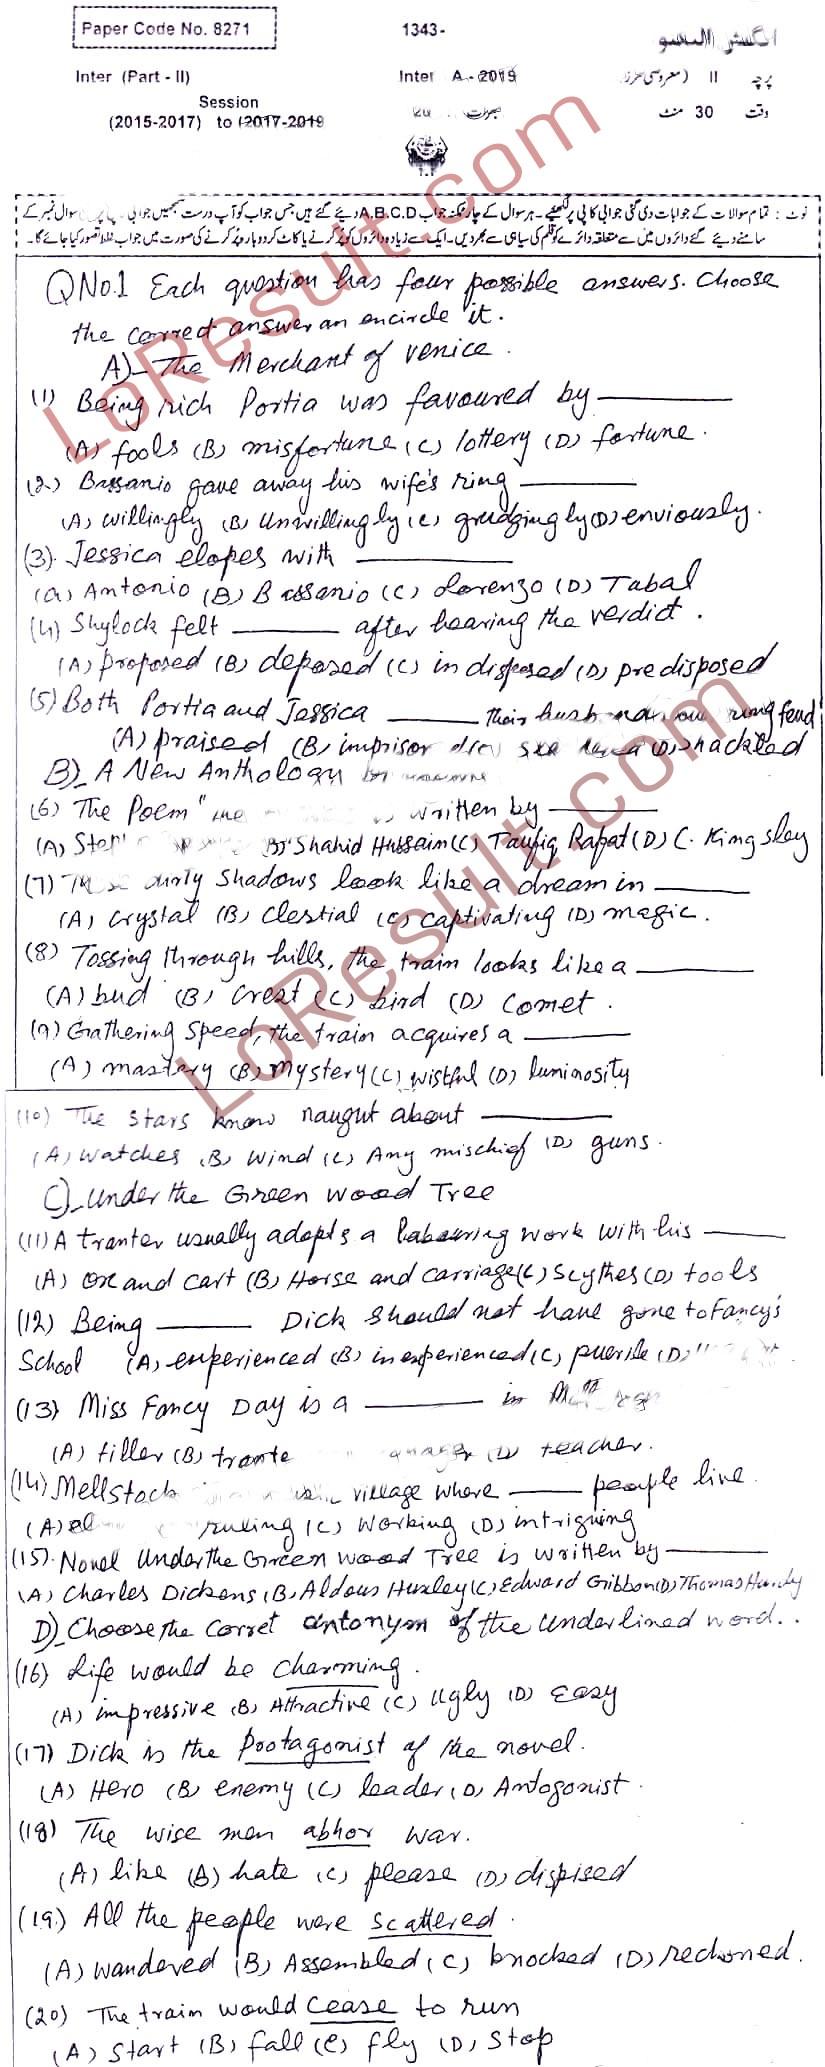 Paper Code No. 8271
1343-
Inter (Part - II)
Inter A - 2019
پرچہ II
Session
(2015-2017) to (2017-2019
وقت 30 منٹ
نوٹ : تمام سوالات کے جوابات دی گئی جوابی کاپی پر لکھیے۔ ہر سوال کے چار ممکنہ جواب A,B,C,D دیئے گئے ہیں جس جواب کو آپ درست سمجھیں جوابی سوال نمبر کے
سامنے دیئے گئے دائروں میں سے متعلقہ دائرے کو قلم کی سیاہی سے بھر دیں۔ ایک سے زیادہ دائروں کو پُر کرنے یا کاٹ کر دوبارہ پُر کرنے کی صورت میں جواب غلط تصور کیا جائے گا۔
QNo.1 Each question has four possible answers. Choose
the correct answer an encircle it.
A)- The Merchant of venice.
(1) Being rich Portia was favoured by ______
(A) fools (B) misfortune (C) lottery (D) fortune.
(2.) Bassanio gave away his wife's ring ______
(A) willingly (B) Unwillingly (C) grudgingly (D) enviously.
(3). Jessica elopes with ______
(a) Antonio (B) Bassanio (C) Lorenzo (D) Tabal
(4) Shylock felt ______ after hearing the verdict.
(A) proposed (B) deposed (C) indisposed (D) predisposed
(5) Both Portia and Jessica ______ their ring feud
(A) praised (B) (D) shackled
B)- A New Anthology
(6) The Poem " written by ______
(A) (B) Shahid Hussain (C) Taufiq Rafat (D) C. Kingsley
(7) shadows look like a dream in ______
(A) Crystal (B) Clestial (C) captivating (D) magic.
(8) Tossing through hills, the train looks like a ______
(A) bud (B) Crest (C) bird (D) Comet.
(9) Gathering speed, the train acquires a ______
(A) mastery (B) Mystery (C) wistful (D) luminosity
(10) The stars know naught about ______
(A) watches (B) wind (C) Any mischief (D) guns.
C)- Under the Green wood Tree
(11) A tranter usually adopts a labouring work with his ______
(A) ox and cart (B) Horse and carriage (C) Scythes (D) tools
(12) Being ______ Dick should not have gone to Fancy's
School (A) experienced (B) inexperienced (C) puerile (D)
(13) Miss Fancy Day is a ______ in
(A) tiller (B) (D) teacher.
(14) Mellstock village where ______ people live.
(A) ruling (C) working (D) intriguing
(15). Novel Under the Green wood Tree is written by ______
(A) Charles Dickens (B) Aldous Huxley (C) Edward Gibbon (D) Thomas Hardy
D)- Choose the Corret antonym of the underlined word..
(16) Life would be charming.
(A) impressive (B) Attractive (C) Ugly (D) Easy
(17) Dick is the Protagonist of the novel.
(A) Hero (B) enemy (C) leader (D) Antogonist.
(18) The wise men abhor war.
(A) like (B) hate (C) please (D) dispised
(19) All the people were scattered.
(A) wandered (B) Assembled (C) knocked (D) reckoned.
(20) The train would Cease to run
(A) Start (B) fall (C) fly (D) Stop
LoResult.com
LoResult.com